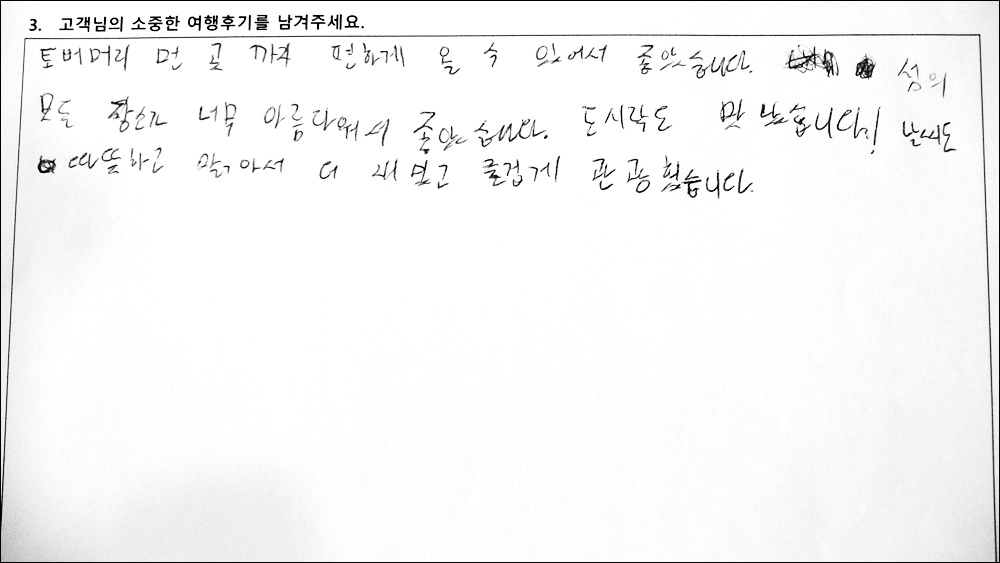 3. 고객님의 소중한 여행후기를 남겨주세요.
토버머리 먼 곳 까지 편하게 올 수 있어서 좋았습니다. 섬의
모든 장소가 너무 아름다워서 좋았습니다. 도시락도 맛났습니다! 날씨도
따뜻하고 맑아서 더 즐겁게 관광했습니다.